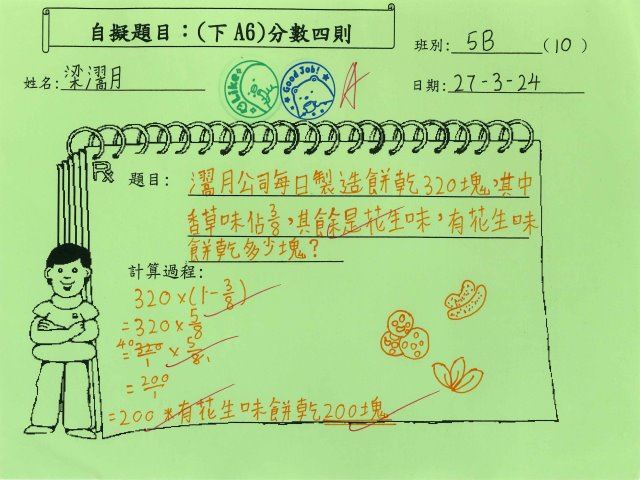 自擬題目：(下A6)分數四則
班別: 5B (10)
姓名: 梁濡月
Like
Good Job!
A
日期: 27-3-24
題目: 濡月公司每日製造餅乾320塊，其中
香草味佔3/8，其餘是花生味，有花生味
餅乾多少塊？
計算過程:
320×(1-3/8)
=320×5/8
=40 320/1×5/8 1
=200/1
=200 *有花生味餅乾200塊